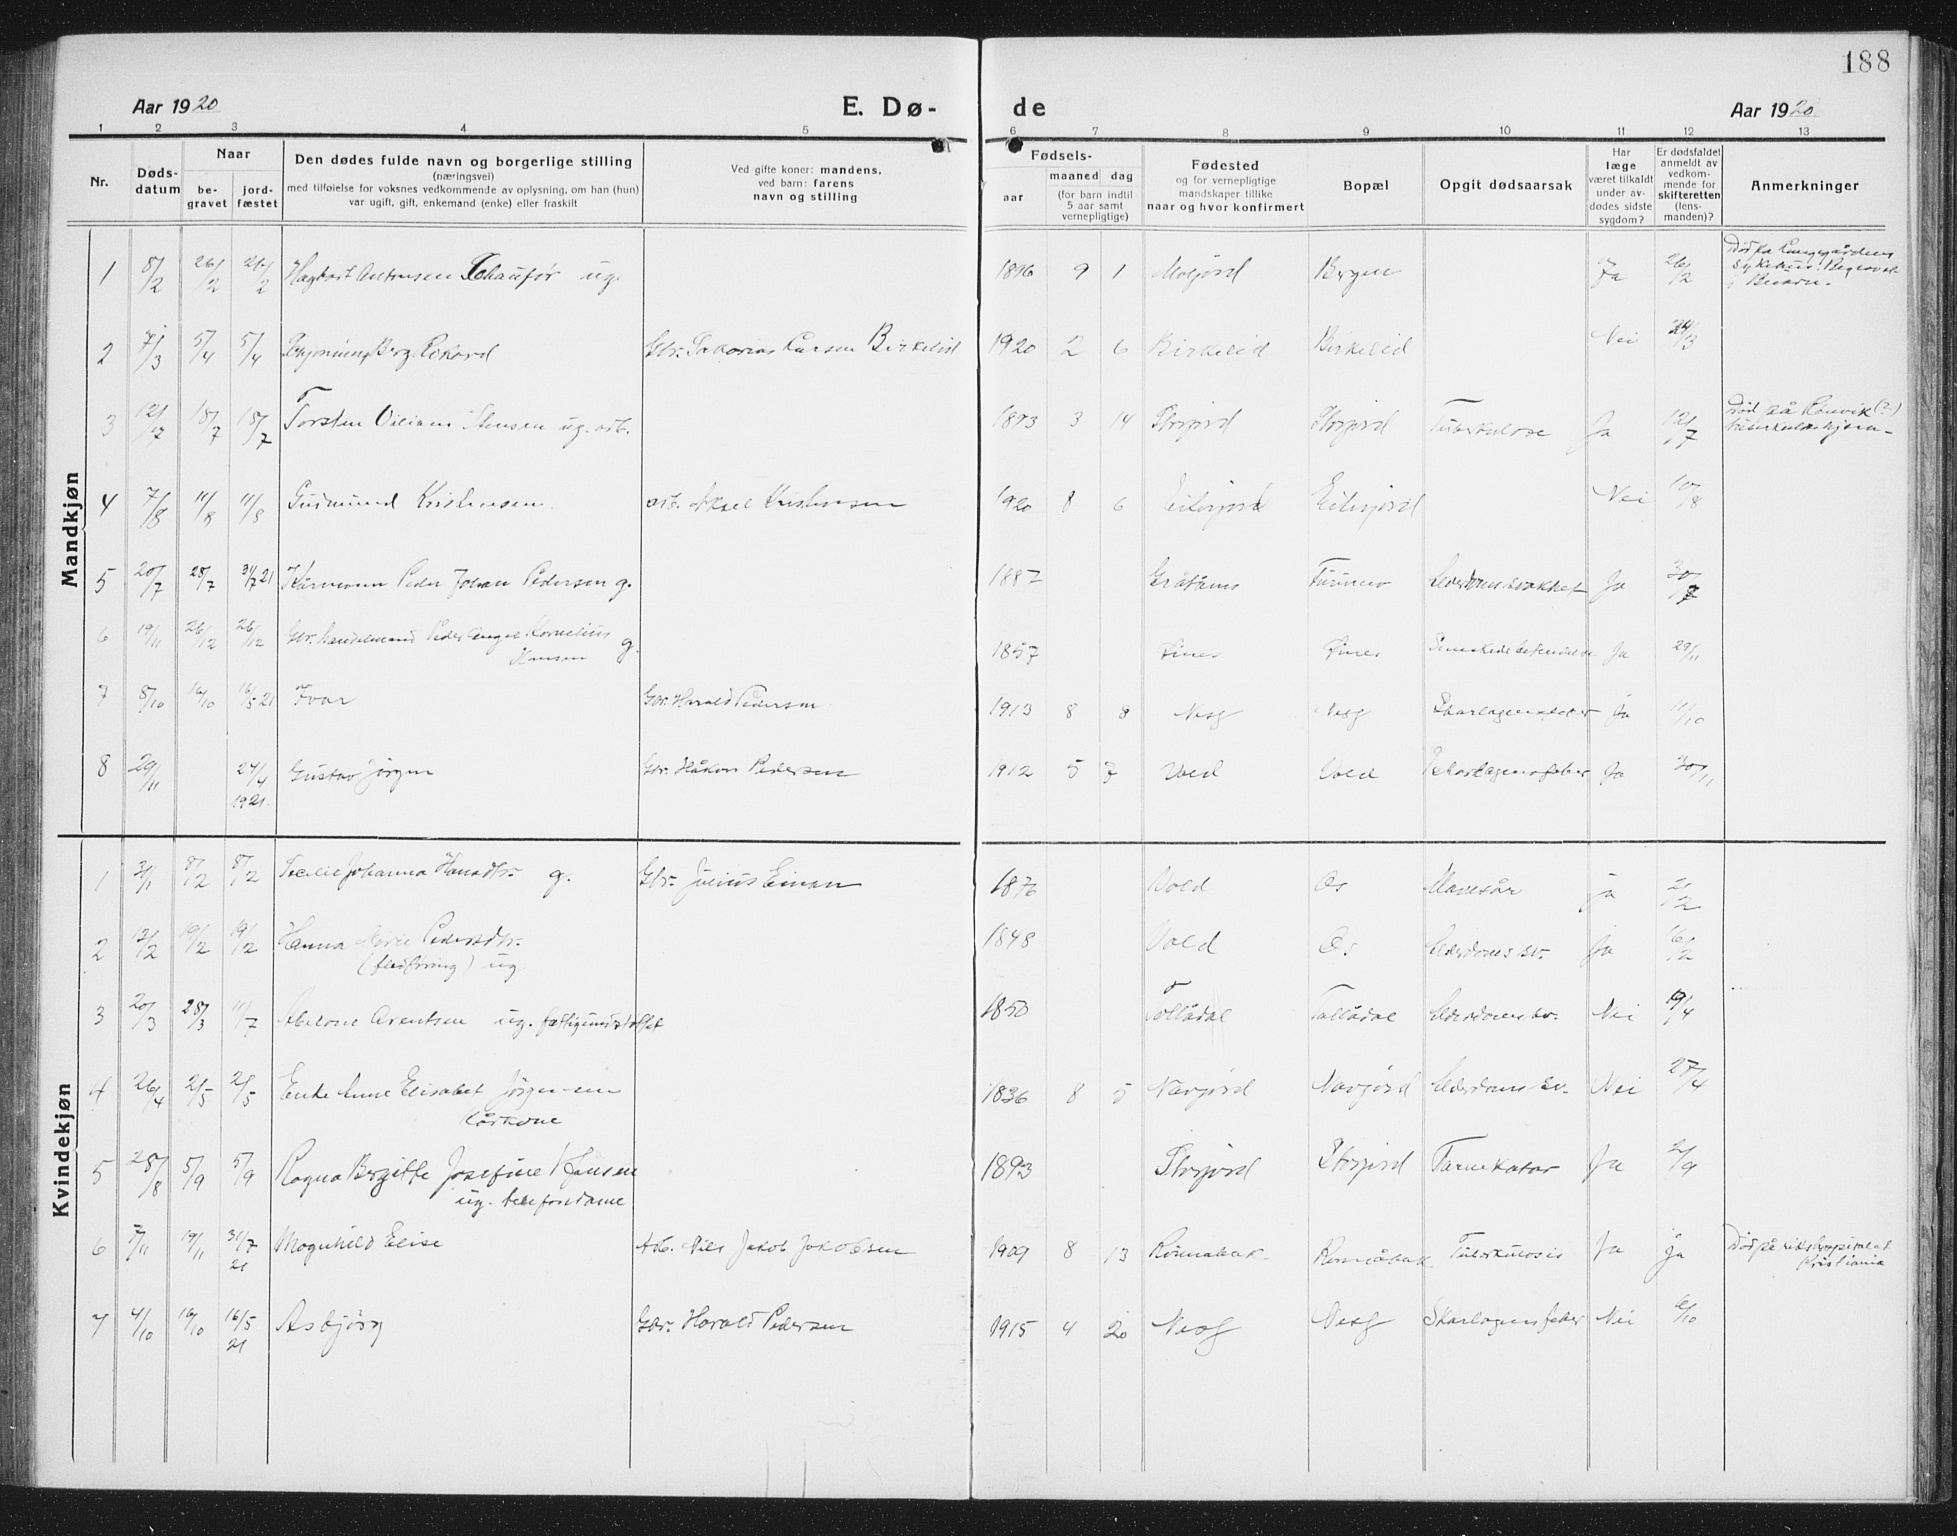 188
Aar 1920 E. Dø- de Aar 1920
1 2 3 4 5 6 7 8 9 10 11 12 13
Nr. Døds-datum Naar be-gravet jord-fæstet
Den dødes fulde navn og borgerlige stilling
(næringsvei)
med tilføielse for voksnes vedkommende av oplysning, om han (hun)
var ugift, gift, enkemand (enke) eller fraskilt
Ved gifte koner: mandens,
ved barn: farens
navn og stilling
Fødsels-
aar maaned dag
(for barn indtil
5 aar samt
vernepligtige)
Fødested
og for vernepligtige
mandskaper tillike
naar og hvor konfirmert
Bopæl
Opgit dødsaarsak
Har
læge
været tilkaldt
under av-
dødes sidste
sygdom?
Er dødsfaldet
anmeldt av
vedkom-
mende for
skifteretten
(lens-
manden)?
Anmerkninger
Mandkjøn
1 8/2 26/2 26/2 Hagbart Antonsen Chauffør ug. 1896 9 1 Moljord Bergen Ja 26/2
2 7/3 5/4 5/4 Berg Rikard Gbr. Larsen Birkelid 1920 2 6 Birkelid Birkelid Nei 24/3
3 12/7 18/7 18/7 Torsten Viliam Stensen ug. arb. 1893 3 14 Storjord Storjord Tuberkulose Ja 12/7 Død på Rønvik (?)
4 7/8 11/8 11/8 Gudmund Kristensen arb. Aksel Kristensen 1920 8 6 Eiterjord Eiterjord Nei 10/8
5 20/7 28/7 31/7 21 Kårmann Peder Johan Pedersen g. 1887 Gråtånes Alderdomssvakhet Ja 30/7
6 19/11 26/12 26/12 Gbr. handelsmand Peder Angel Kornelius
Hansen g. 1857 Ja 29/11
7 8/10 16/10 16/5 21 Ivar Gbr. Harald Pedersen 1913 8 8 Nesg Nesg Skarlagensfeber Ja 11/10
8 29/11 24/4
1921. Gustav Jørgen Gbr. Håkon Pedersen 1912 5 7 Vold Vold Skarlagensfeber Ja 30/11
Kvindekjøn
1 31/1 8/2 8/2 Johanna Hansdtr. g. Gbr. Julius Einan 1876 Vold Os Mavesår ja 2/2
2 12/2 19/2 19/2 Hanna Marie Pedersdtr.
(fledføring) ug 1848 Vold Os Alderdomssv. Ja 16/2
3 20/3 28/3 11/7 Abelone Arentsen ug. fattigunderstøttet 1850 Tollådal Tollådal Alderdomssv. Nei 9/4
4 26/4 2/5 2/5 Enke Anne Elisabet Jørgensen
Kårkone 1836 8 5 Navjord Navjord Alderdoms sv. Nei 27/4
5 28/8 5/9 5/9 Ragna Birgitte Josefine Hansen
ug. telefondame 1893 Storjord Storjord Tarmkatar Ja 2/9
6 7/11 19/11 31/7
21 Magnhild Elise Arb. Nils Jakob Jakobsen 1909 8 13 Rønnabak Tuberkulosis Ja ja Død på rikshospitalet
Kristiania
7 4/10 16/10 16/5
21 Asbjørg Gbr. Harald Pedersen 1915 4 20 Nesg Nesg Skarlagensfeber Nei 6/10